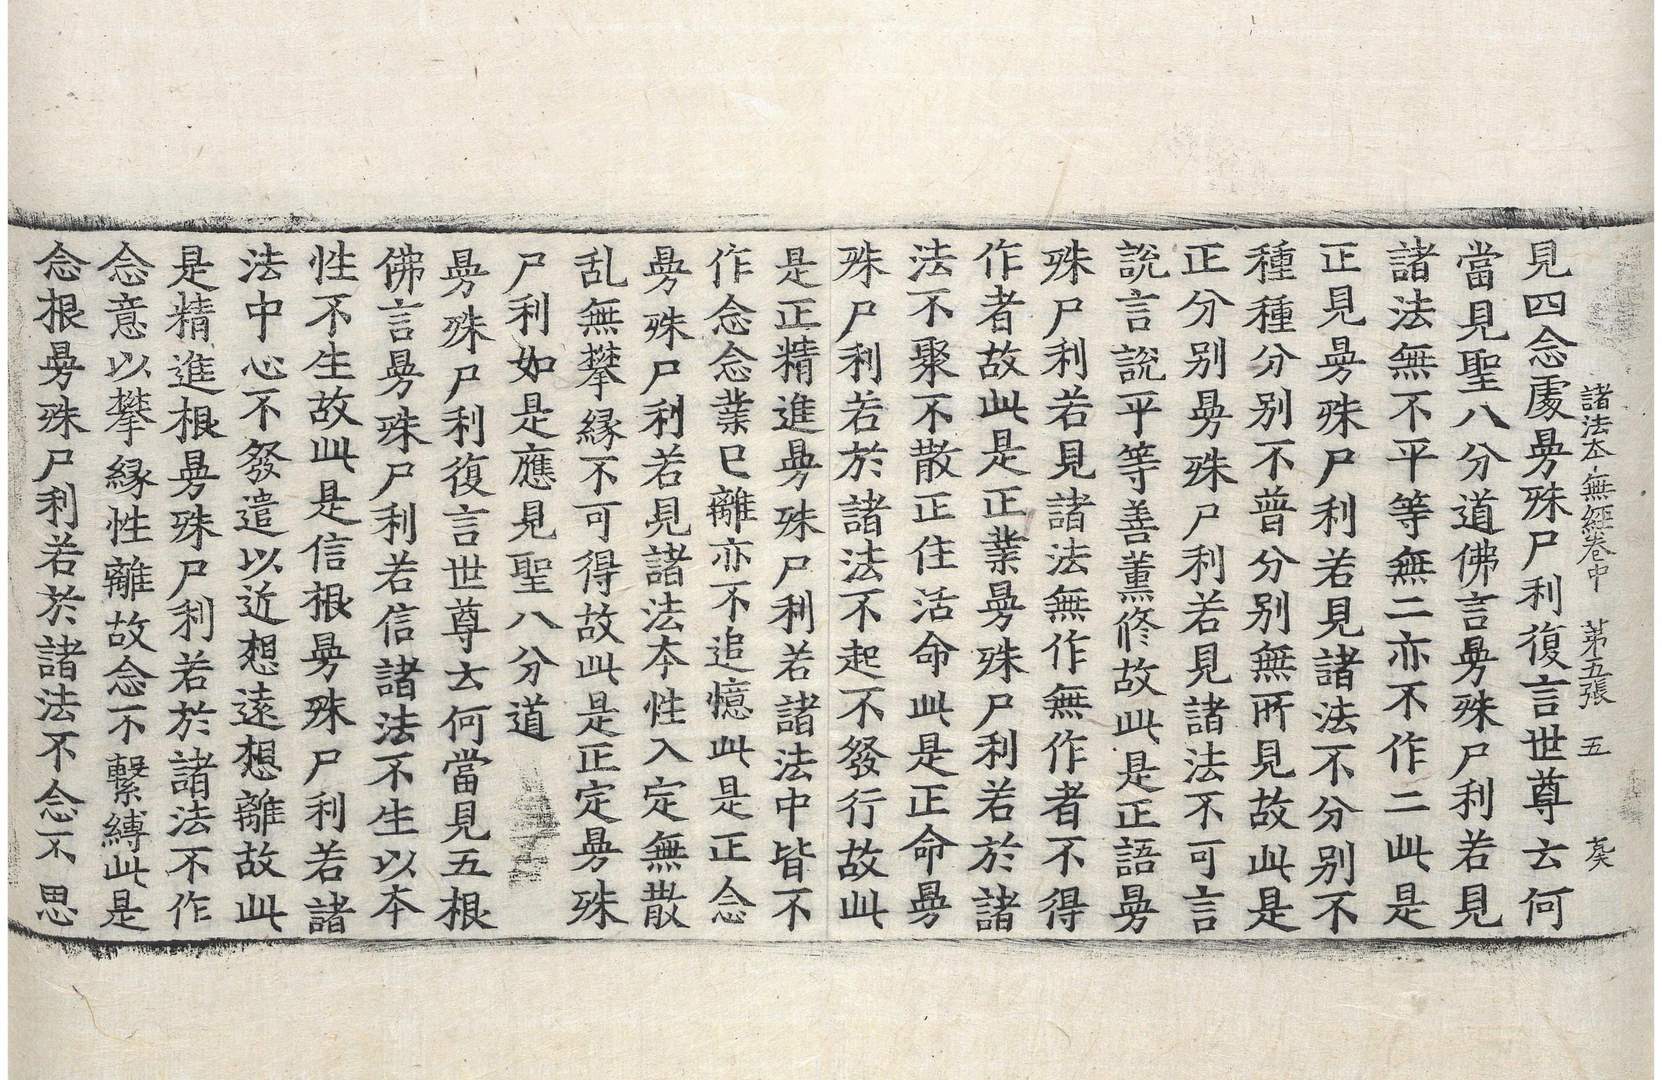 諸法本無經卷中 第五張 五
見四念處曼殊尸利復言世尊云何
當見聖八分道佛言曼殊尸利若見
諸法無不平等無二亦不作二此是
正見曼殊尸利若見諸法不分別不
種種分別不普分別無所見故此是
正分別曼殊尸利若見諸法不可言
說言說平等善薰修故此是正語曼
殊尸利若見諸法無作無作者不得
作者故此是正業曼殊尸利若於諸
法不聚不散正住活命此是正命曼
殊尸利若於諸法不起不發行故此
是正精進曼殊尸利若諸法中皆不
作念念業已離亦不追憶此是正念
曼殊尸利若見諸法本性入定無散
乱無攀緣不可得故此是正定曼殊
尸利如是應見聖八分道
曼殊尸利復言世尊云何當見五根
佛言曼殊尸利若信諸法不生以本
性不生故此是信根曼殊尸利若諸
法中心不發遣以近想遠想離故此
是精進根曼殊尸利若於諸法不作
念意以攀緣性離故念不繫縛此是
念根曼殊尸利若於諸法不念不思